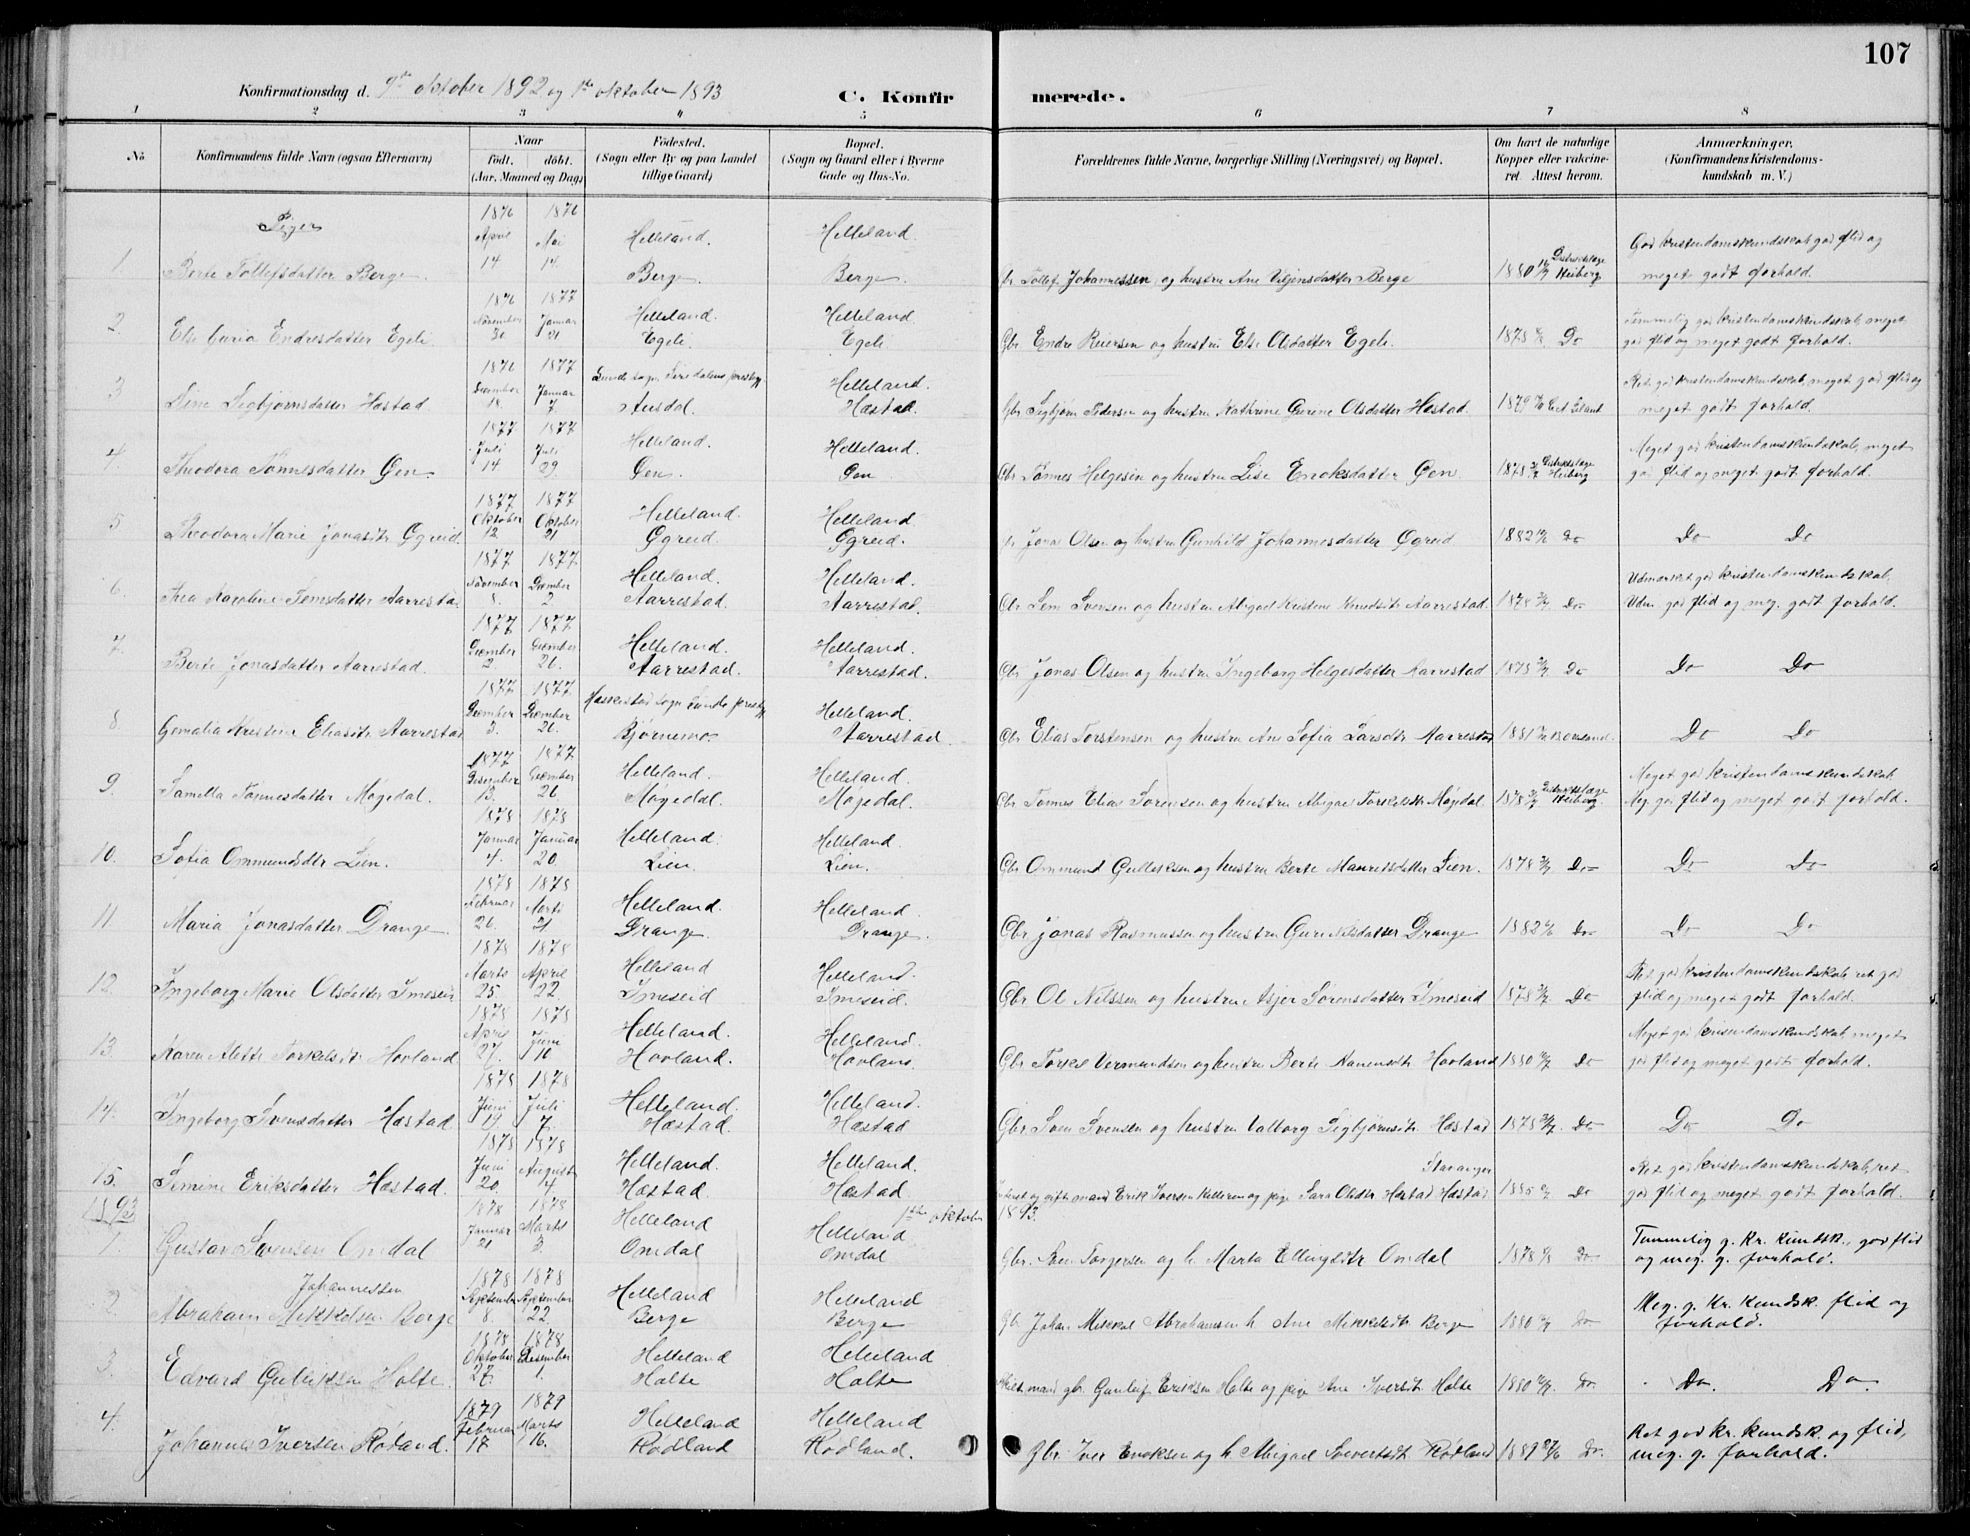 107
Konfirmationsdag d. 9de oktober 1892 og 1ste oktober 1893
C. Konfirmerede.
1 2 3 4 5 6 7 8
No
Konfirmandens fulde Navn (ogsaa Efternavn)
Naar
født. døbt.
(Aar, Maaned og Dag)
Fødested.
(Sogn eller By og paa Landet
tillige Gaard)
Bopæl.
(Sogn og Gaard eller i Byerne
Gade og Hus-No.
Forældrenes fulde Navne, borgerlige Stilling (Næringsvei) og Bopæl.
Om havt de naturlige
Kopper eller vakcine-
ret. Attest herom.
Anmærkninger.
(Konfirmandens Kristendoms-
kundskab m. V.)
Piger
1 Berte Tollefsdatter Berge. 1876 April 14 1876 Mai 14. Helleland. Berge. Helleland. Berge. Gbr Tollef Johannessen og hustru Ane Viljensdatter Berge 1880 Distriktslæge Heiberg God kristendomskundskab god flid og
meget godt forhold.
2. Else Guria Endresdatter Egeli 1876 November 30 1877 Januar 21 Helleland. Egeli. Helleland. Egeli Gbr Endre Reiersen og hustru Else Olsdatter Egeli. 1878 Do Temmelig god kristendomskundskab, meget
god flid og meget godt forhold.
3 Line Sigbjørnsdatter Hæstad 1876 December 18. 1877 Januar 7. Lunde sogn Siredalens præstegj. Ausdal. Helleland. Hæstad. Gbr Sigbjørn Pedersen og hustru Kathrine Gurine Olsdatter Hæstad. 1879 Ret god kristendomskundskab, meget god flid og
meget godt forhold.
4. Theodora Tønnesdatter Øen. 1877 Juli 14 1877 Juli 29. Helleland. Øen. Helleland. Øen Gbr Tønnes Helgesen og hustru Lise Enoksdatter Øen. 1878 Distriktslæge Heiberg Meget god kristendomskundskab, meget
god flid og meget godt forhold.
5 Theodora Marie Jonasdtr Øgreid. 1877 Oktober 12 1877 Oktober 21 Helleland. Øgreid. Helleland. Øgreid. Jonas Olsen og hustru Gunhild Johannesdatter Øgreid 1882 Do Do Do
6. Thea Karoline Semsdatter Aarrestad 1877 November 8. 1877 December 2 Helleland. Aarrestad. Helleland. Aarrestad. Gbr Sem Svensen og hustru Abigael Kristine Knudsdtr Aarrestad 1878 Do Udmærket god kristendomskundskab,
Udm. god flid og meg. godt forhold.
7. Berte Jonasdatter Aarrestad. 1877 December 2 1877 December 26. Helleland. Aarrestad. Helleland. Aarrestad. Gbr Jonas Olsen og hustru Ingeborg Helgesdatter Aarrestad 1878 Do Do Do
8 Gemalia Kristine Eliasdtr Aarrestad 1877 December 3. 1877. December 26. Heskestad sogn Lunde præstegj. Bjørnemo. Helleland. Aarrestad. Gbr Elias Torstensen og hustru Ane Sofia Larsdtr Aarrestad 1881 Do Do
9. Samella Tønnesdatter Møgedal. 1877 December 13. 1877 December 26 Helleland. Møgedal. Helleland. Møgedal. Gbr Tønnes Elias Sørensen og hustru Abigael Torkelsdtr Møgedal 1878 Distriktslæge Heiberg. Meget god kristendomskundskab
Meg. god flid og meget godt forhold.
10. Sofia Ommundsdtr Lien. 1878 Januar 4. 1878 Januar 20. Helleland. Lien. Helleland. Lien. Gbr Ommund Gulleksen og hustru Berte Mauritsdatter Lien. 1878 Do Do Do
11. Maria Jonasdatter Drange 1878 Februar 26. 1878 Marts 31 Helleland. Drange. Helleland. Drange. Gbr Jonas Rasmussen og hustru Guri Nilsdatter Drange 1882 Do Do Do
12. Ingeborg Marie Olsdatter Imeseid 1878 Marts 25. 1878 April 22 Helleland Imeseid Helleland. Imeseid. Gbr Ol Nilssen og hustru Asjer Sørensdatter Imeseid 1878 Do Ret god kristendomskundskab, ret god
flid og meget godt forhold.
13. Karen Alette Torkelsdtr Hovland 1878 April 27. 1878 Juni 10 Helleland. Hovland. Helleland. Hovland. Gbr Torkel Vermundsen og hustru Berte Hovland 1880 Do Meget god kristendomskundskab, meget
god flid og meget godt forhold.
14. Ingeborg Svensdatter Hæstad 1878 Juni 19. 1878 Juli 7. Helleland. Hæstad. Helleland. Hæstad Gbr Sven Svensen og hustru Valborg Sigbjørnsdtr Hæstad 1878 Do Do Do
15. Semine Eriksdatter Hæstad. 1878 Juni 20. 1878 August 4 Helleland. Hæstad. Helleland. Hæstad gift mand Erik Iversen og pige Sara Olsdtr Hæstad Hæstad Stavanger 1885 Do Ret god kristendomskundskab, ret
god flid og meget godt forhold.
1893 1ste oktober 1893.
1. Gustav Svensen Omdal 1878 Januar 21 1878 Marts 3. Helleland Omdal Helleland Omdal Gbr. Sven Torgersen og h. Marta Ellingsdtr Omdal 1878 Do Temmelig g. kr. kundsk., god flid
og meg. g. forhold.
2. Abraham Mikkelsen Johannessen Berge 1878 September 8. 1878 September 22 Helleland Berge Helleland Berge Gbr Johan Mikkal Abrahamsen h. Ane Mikkelsdtr Berge 1880 Do Meg. g. kr. kundsk. flid og
forhold.
3. Edvard Gulleiksen Holte. 1878 Oktober 27. 1878 Desember 1. Helleland Holte Helleland Holte mand gbr. Gunleif Eriksen Holte og pige Ane Iversdtr Holte 1880 Do. Do. Do.
4. Johannes Iversen Rødland. 1879 Februar 17. 1879 Marts 16. Helleland Rødland Helleland Rødland. Gbr. Iver Enoksen og h. Abigael Sivertsdtr Rødland 1889 Do. Ret god kr. kundsk. og flid,
meg. g. forhold.